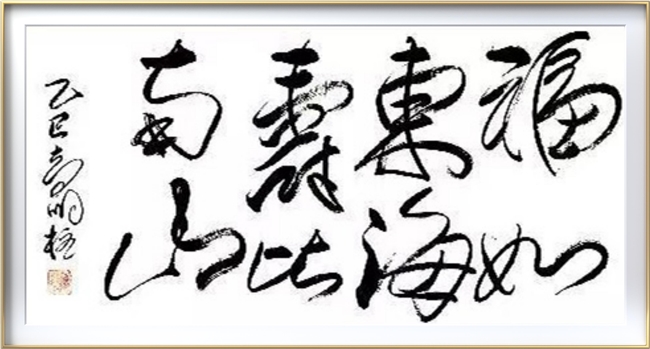 福如
東海
壽比
南山
乙巳高明